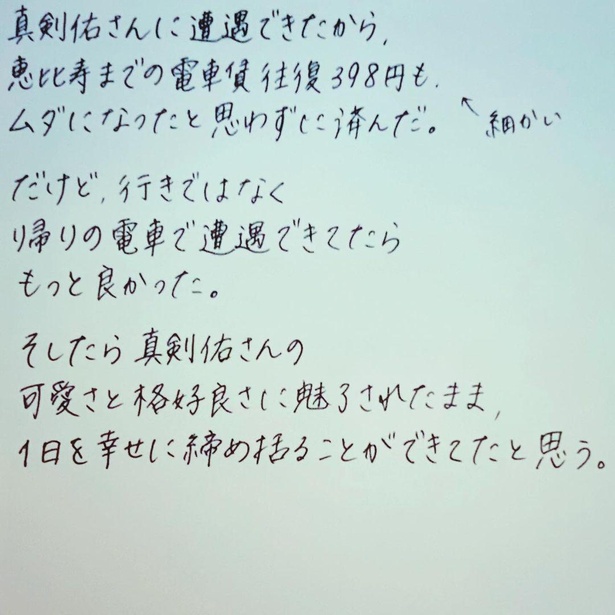 真剣佑さんに遭遇できたから,
恵比寿までの電車賃往復398円も,
ムダになったと思わずに済んだ。 ↖細かい
だけど,行きではなく
帰りの電車で遭遇できてたら
もっと良かった。
そしたら真剣佑さんの
可愛さと格好良さに魅了されたまま,
1日を幸せに締め括ることができてたと思う。